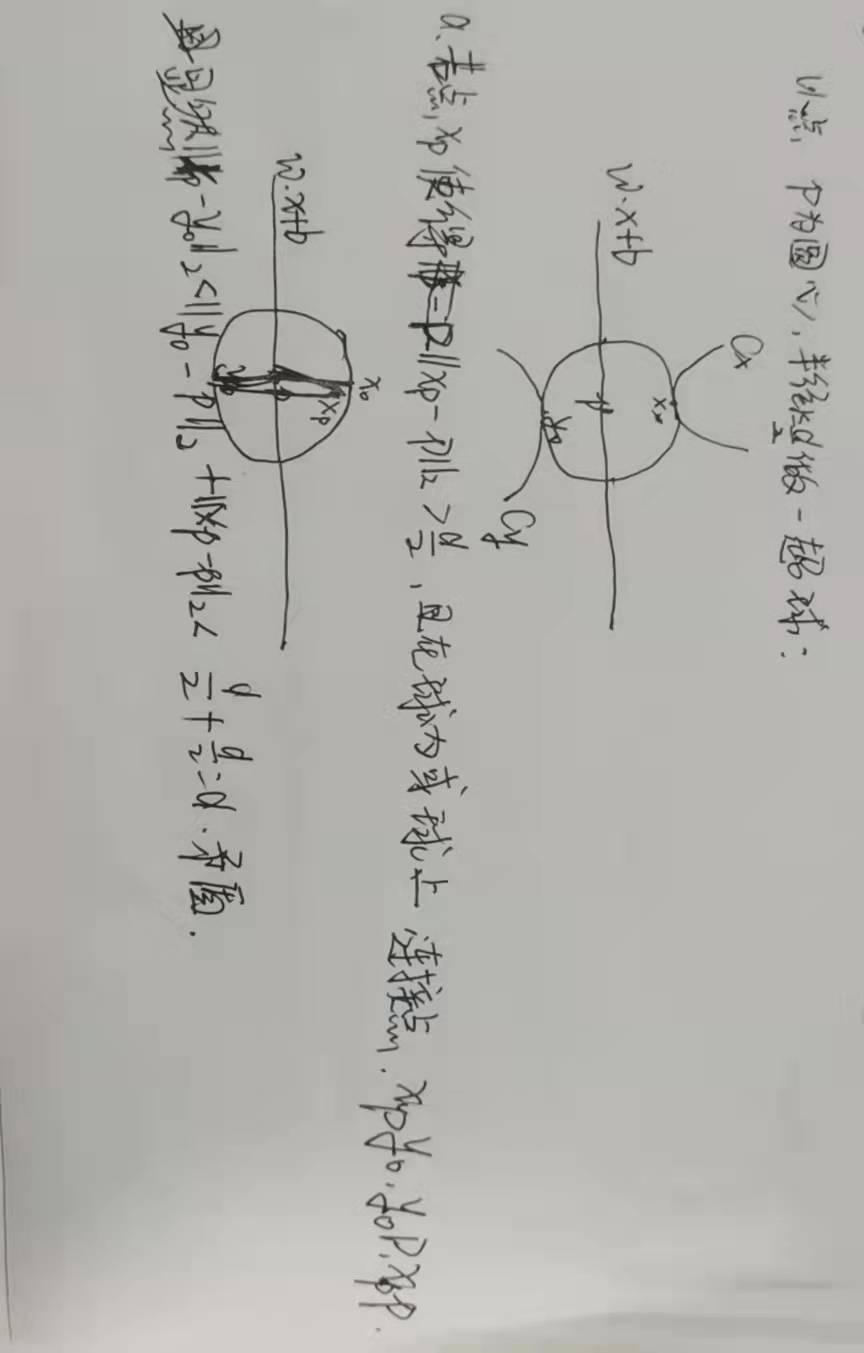 以点 P为圆心,半径长d/2做一超球:
Cx
x₀
w·x+b
P
y₀
Cy
a.若点xp使得 ||xp-P||₂>d/2,且在球内或球上 连接点.xpy₀.y₀P.xpP.
x₀
xp
w·x+b
y₀
且显然||xp-y₀||₂<||y₀-P||₂+||xp-P||₂< d/2+d/2=d.矛盾.